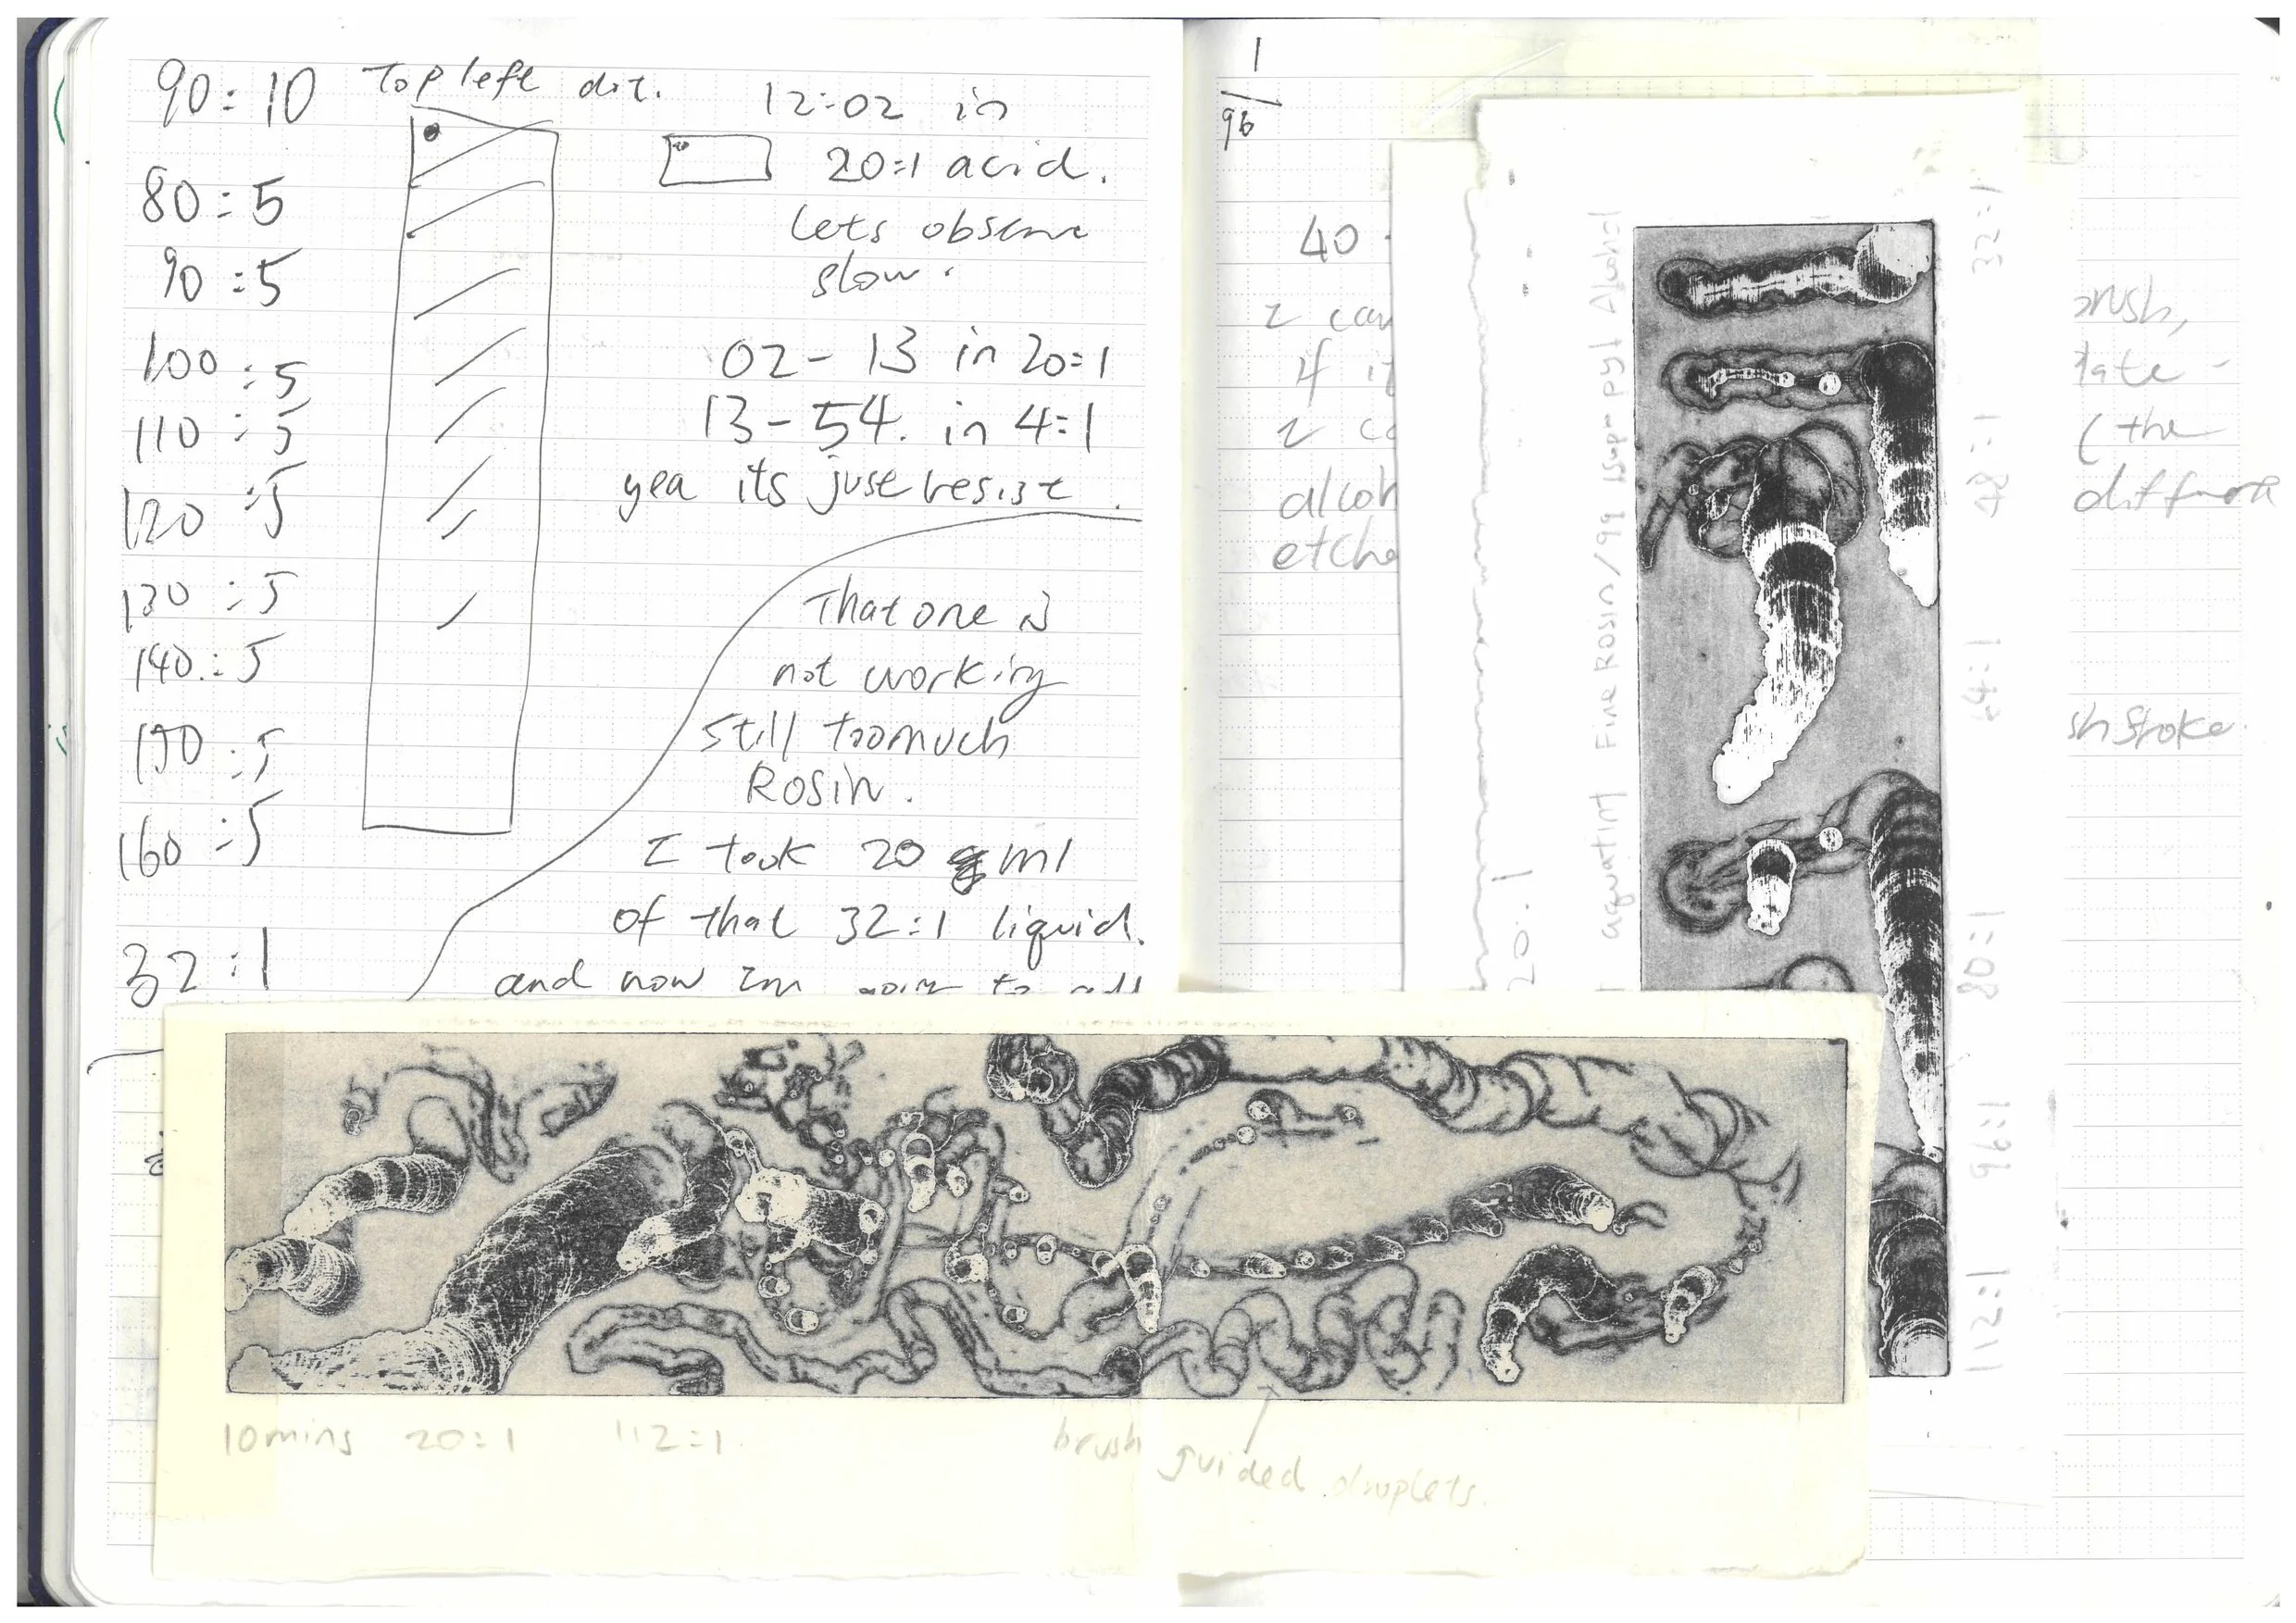 90:10
80:5
90:5
100:5
110:5
120:5
130:5
140:5
150:5
160:5
32:1
Top left dot.
12:02 in
20:1 acid.
lets observe
slow.
02-13 in 20:1
13-54. in 4:1
yea its just resist.
That one is
not working
still too much
Rosin.
I took 20 ml
of that 32:1 liquid.
and now Im going to add
1
96
40
I can
brush,
if it
I
(the
alcoh
etche
sh stroke.
20:1
aquatint Fine Rosin/99 Isopropyl Alcohol
32:1
48:1
64:1
80:1
96:1
112:1
10mins 20:1 112:1
brush guided droplets.